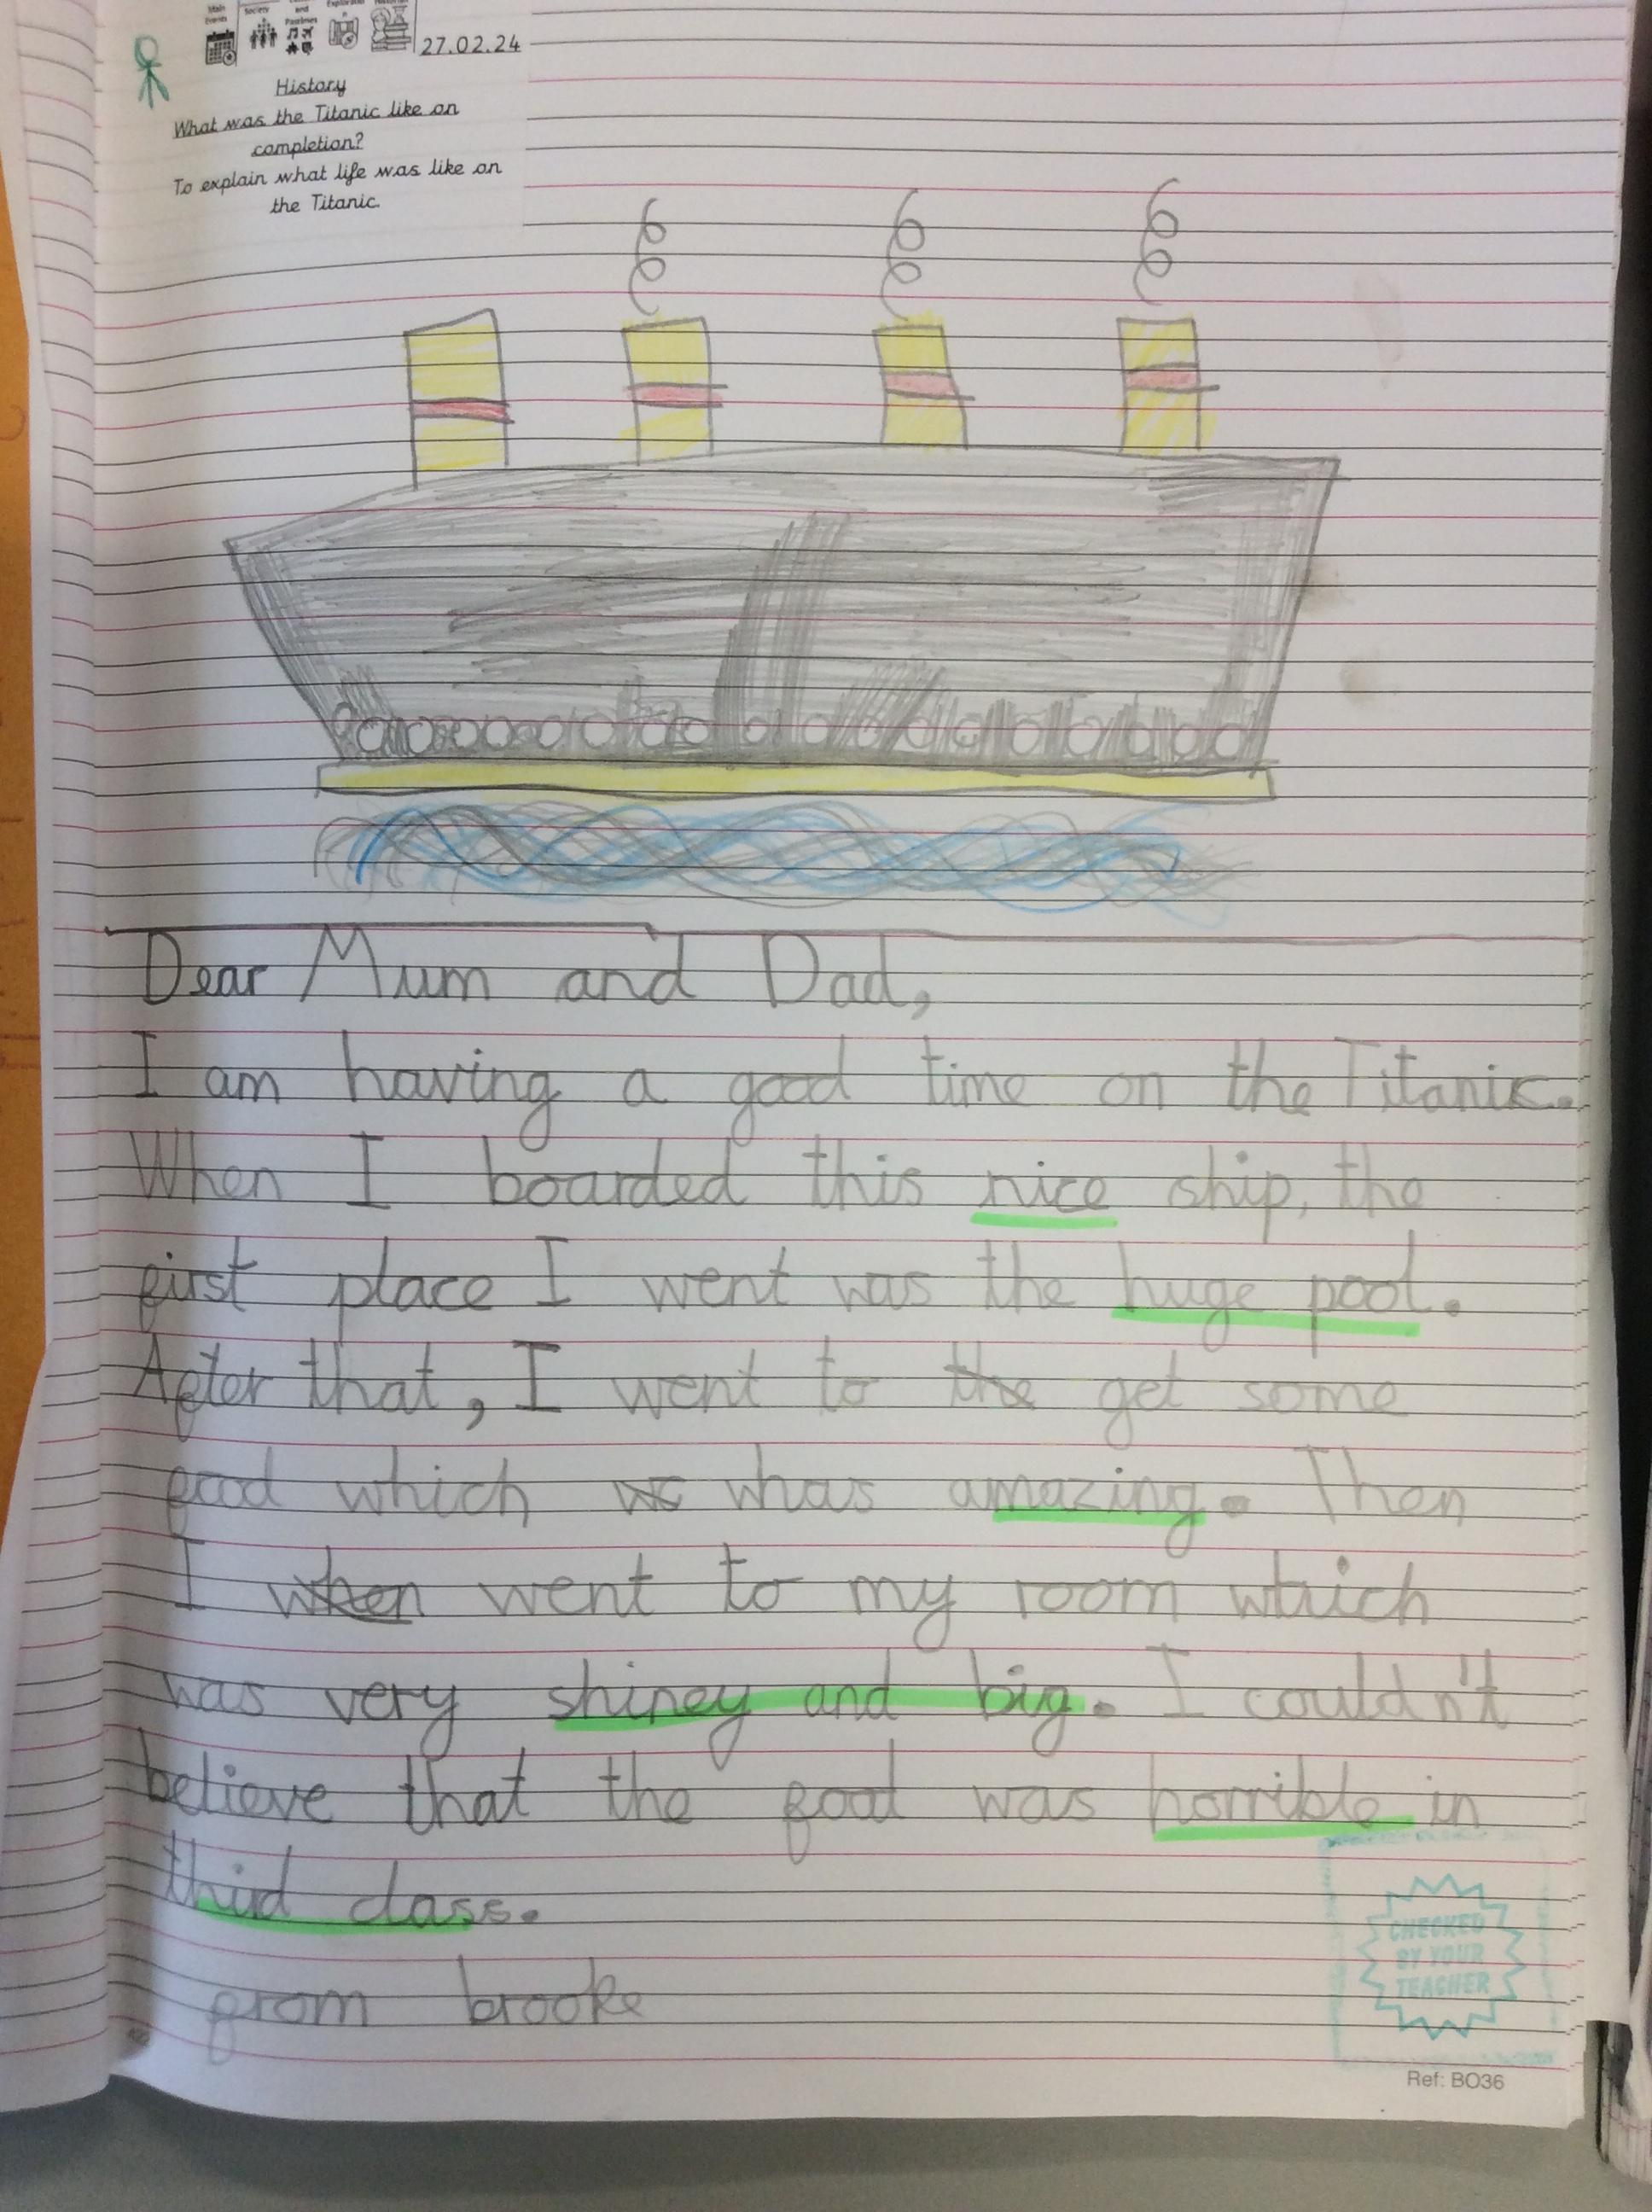 Main Events Society and Pastimes
27.02.24
History
What was the Titanic like on
completion?
To explain what life was like on
the Titanic.
Dear Mum and Dad,
I am having a good time on the Titanic.
When I boarded this nice ship, the
first place I went was the huge pool.
After that, I went to the get some
food which wc whas amazing. Then
I when went to my room which
was very shiney and big. I couldn't
believe that the food was horrible in
third class.
from brooke
CHECKED
BY YOUR
TEACHER
Ref: BO36